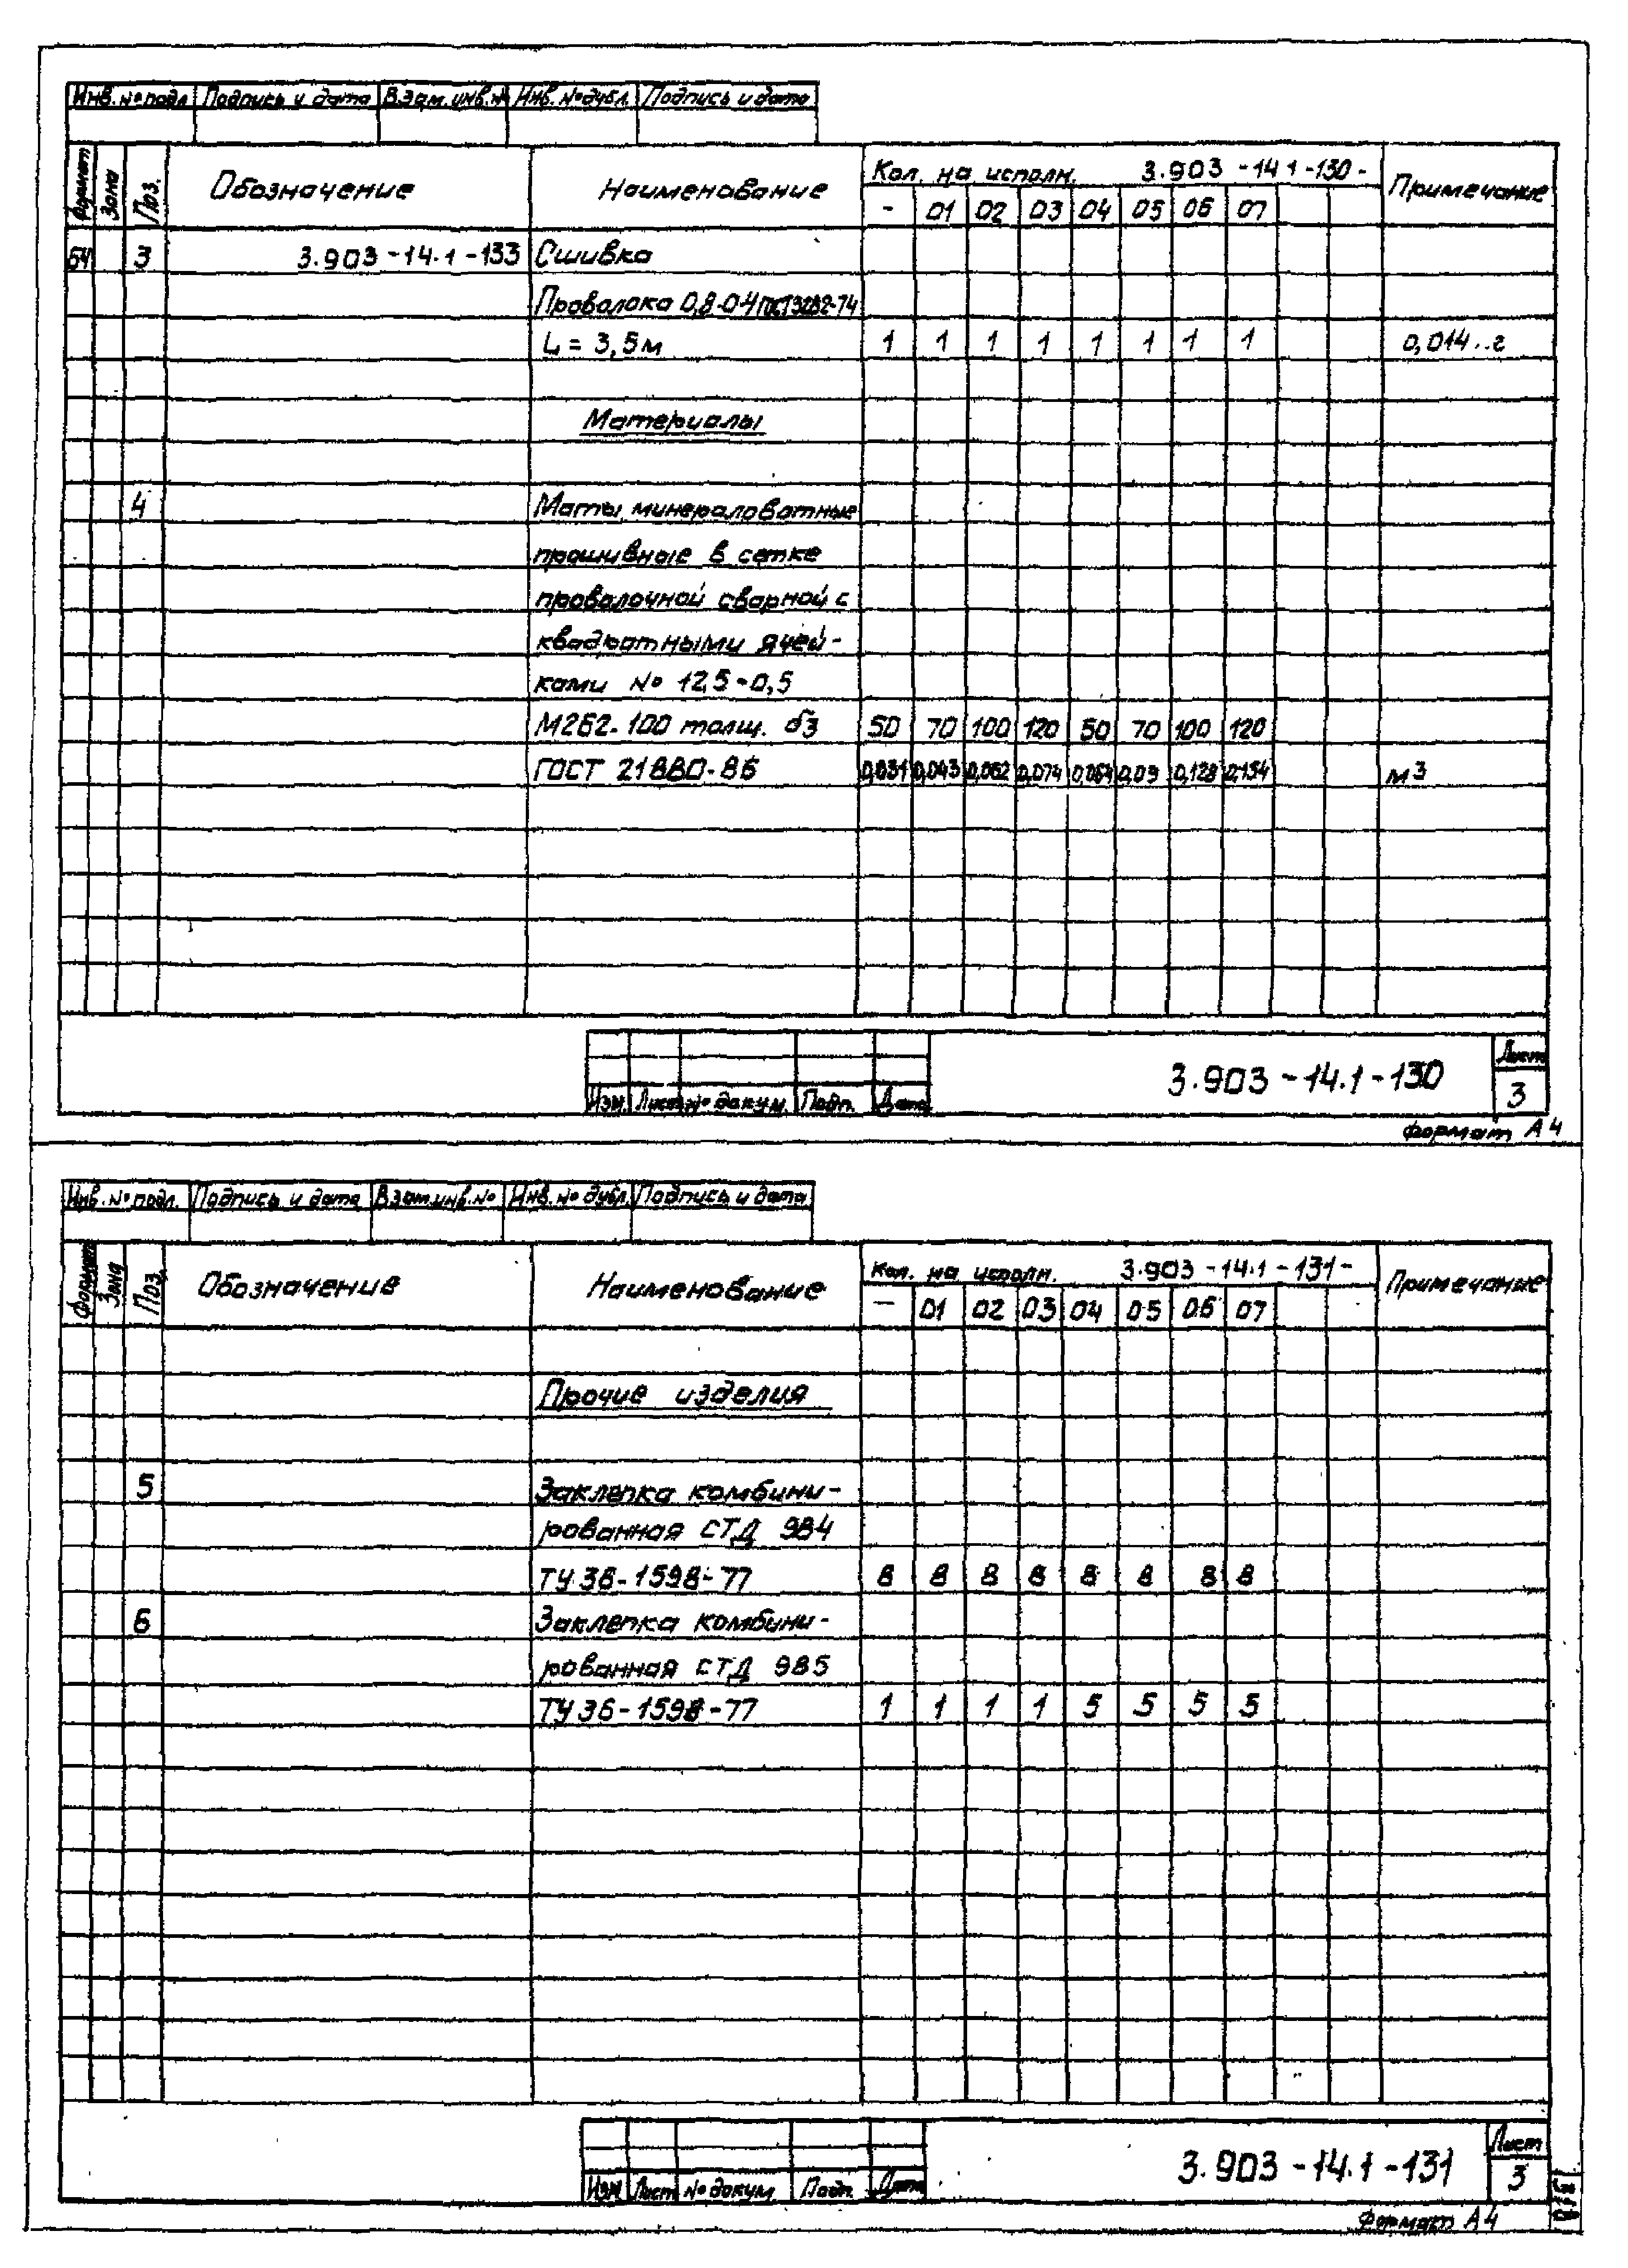 Инв. № подл. Подпись и дата Взам. инв. № Инв. № дубл. Подпись и дата
Формат Зона Поз. Обозначение Наименование Кол. на исполн. 3.903-14 1-130- Примечание
- 01 02 03 04 05 06 07
БЧ 3 3.903-14.1-133 Сшивка
Проволока 0,8-О-Ч ГОСТ 3282-74
L = 3,5м 1 1 1 1 1 1 1 1 0,014
Материалы
4 Маты минераловатные
прошивные в сетке
проволочной сварной с
квадратными ячей-
ками № 12,5-0,5
М2Б2-100 толщ. б3 50 70 100 120 50 70 100 120
ГОСТ 21880-86 0,031 0,043 0,062 0,074 0,064 0,09 0,128 0,154 м3
Изм. Лист № докум. Подп. Дата
3.903-14.1-130
Лист
3
Формат А4
Инв. № подл. Подпись и дата Взам. инв. № Инв. № дубл. Подпись и дата
Формат Зона Поз. Обозначение Наименование Кол. на исполн. 3.903-14.1-131- Примечание
- 01 02 03 04 05 06 07
Прочие изделия
5 Заклепка комбини-
рованная СТД 984
ТУ 36-1598-77 8 8 8 8 8 8 8 8
6 Заклепка комбини-
рованная СТД 985
ТУ 36-1598-77 1 1 1 1 5 5 5 5
Изм Лист № докум. Подп. Дата
3.903-14.1-131
Лист
3
Формат А4